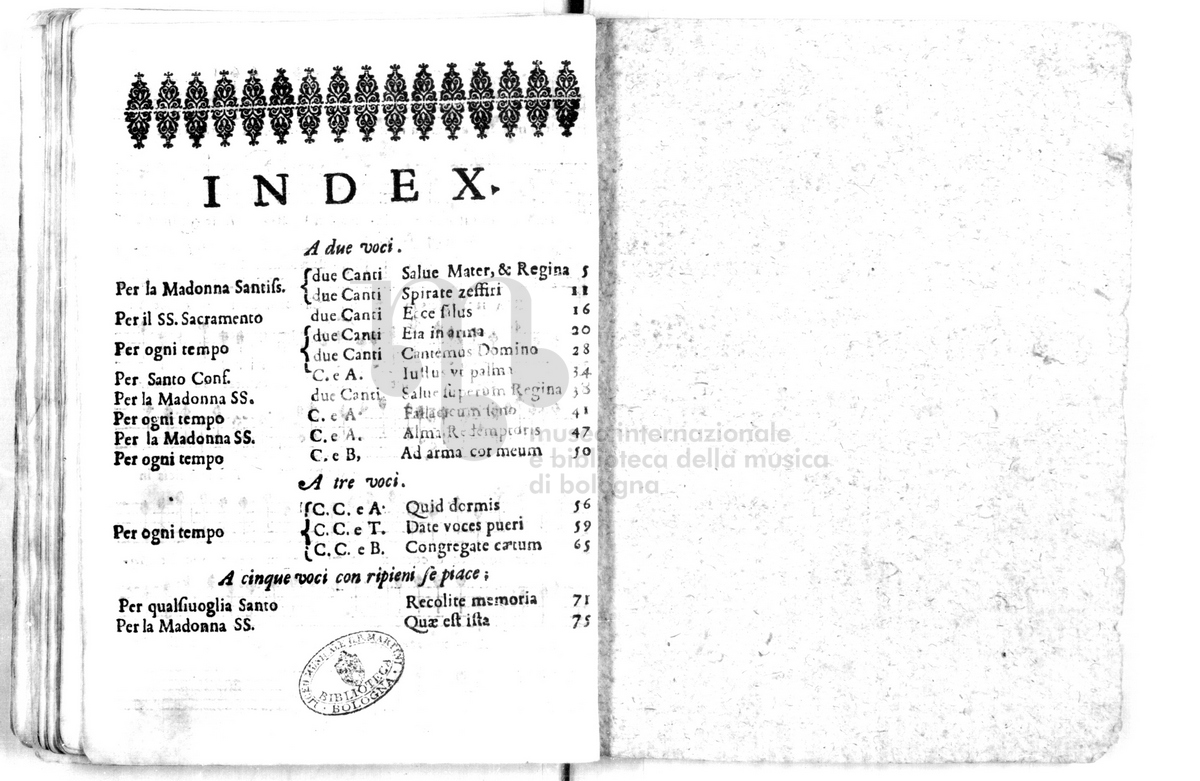 INDEX.
A due voci.
Per la Madonna Santiſs. due Canti Salue Mater, & Regina 5
due Canti Spirate zeffiri 11
Per il SS. Sacramento due Canti Ecce filus 16
Per ogni tempo due Canti Eia in arma 20
due Canti Cantemus Domino 28
Per Santo Conf. C. e A. Iuſtus vt palma 34
Per la Madonna SS. due Canti Salue ſuperum Regina 38
Per ogni tempo C. e A. 41
Per la Madonna SS. C. e A. Alma Redemptoris 47
Per ogni tempo C. e B, Ad arma cor meum 50
A tre voci.
C. C. e A. Quid dormis 56
Per ogni tempo C. C. e T. Date voces pueri 59
C. C. e B. Congregate cætum 65
A cinque voci con ripieni ſe piace;
Per qualſiuoglia Santo Recolite memoria 71
Per la Madonna SS. Quæ eſt iſta 75
BIBLIOTECA
BOLOGNA
museo internazionale
e biblioteca della musica
di bologna